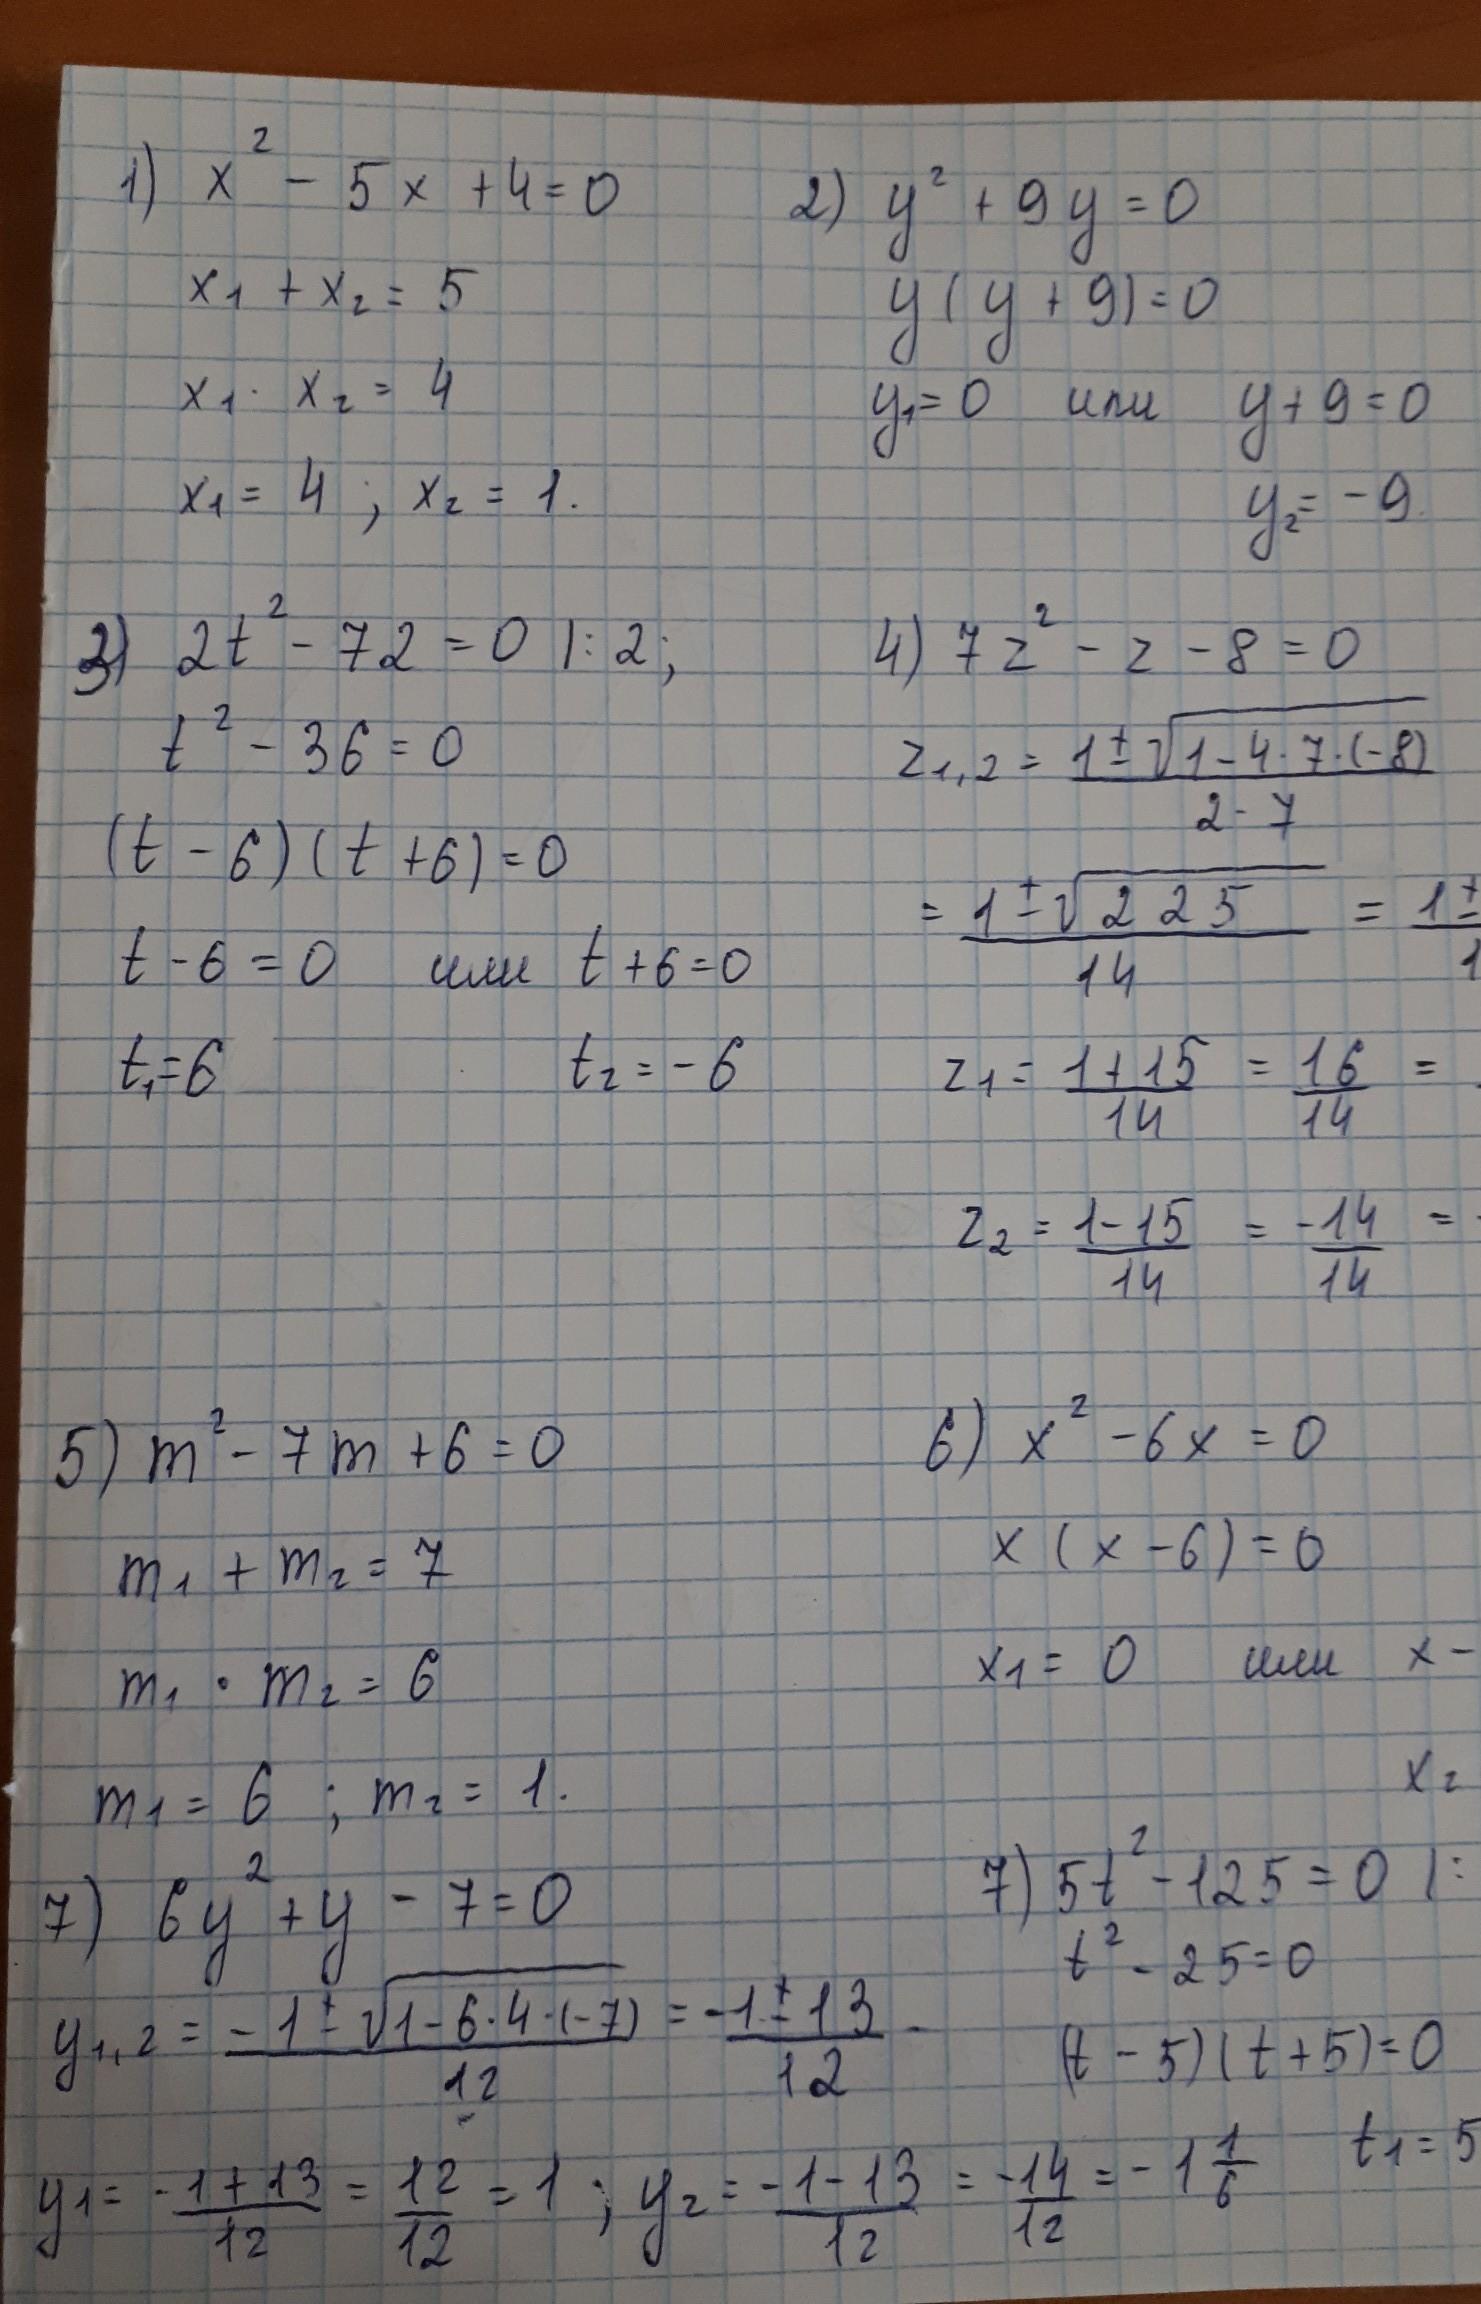 1) x² - 5x + 4 = 0
x₁ + x₂ = 5
x₁ · x₂ = 4
x₁ = 4 ; x₂ = 1.
2) y² + 9y = 0
y(y + 9) = 0
y₁ = 0 или y + 9 = 0
y₂ = -9.
3) 2t² - 72 = 0 |: 2;
t² - 36 = 0
(t - 6)(t + 6) = 0
t - 6 = 0 или t + 6 = 0
t₁ = 6 t₂ = -6
4) 7z² - z - 8 = 0
z₁,₂ = (1 ± √(1 - 4 · 7 · (-8))) / (2 · 7)
= (1 ± √225) / 14 = 1 ± / 1
z₁ = (1 + 15) / 14 = 16 / 14 =
z₂ = (1 - 15) / 14 = -14 / 14 = -
5) m² - 7m + 6 = 0
m₁ + m₂ = 7
m₁ · m₂ = 6
m₁ = 6 ; m₂ = 1.
6) x² - 6x = 0
x(x - 6) = 0
x₁ = 0 или x -
x₂
7) 6y² + y - 7 = 0
y₁,₂ = (-1 ± √(1 - 6 · 4 · (-7))) / 12 = (-1 ± 13) / 12
y₁ = (-1 + 13) / 12 = 12 / 12 = 1 ; y₂ = (-1 - 13) / 12 = -14 / 12 = -1 1/6
7) 5t² - 125 = 0 |:
t² - 25 = 0
(t - 5)(t + 5) = 0
t₁ = 5